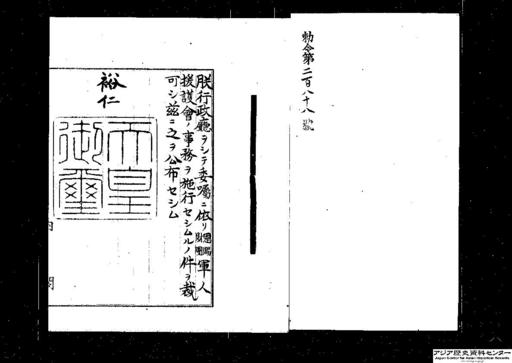 勅令第二百八十八號
朕行政廳ヲシテ委囑ニ依リ恩賜財團軍人
援護會ノ事務ヲ施行セシムルノ件ヲ裁
可シ茲ニ之ヲ公布セシム
裕仁
天皇御璽
内閣
アジア歴史資料センター
Japan Center for Asian Historical Records